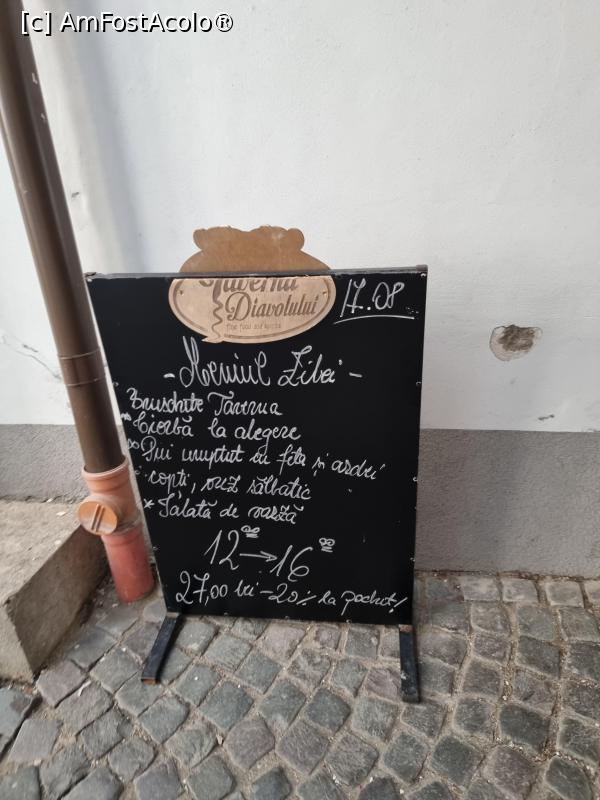 [c] AmFostAcolo®
Taverna
Diavolului
fine food and spirits
17.08
- Meniul Zilei -
Bruschite Taverna
* Ciorbă la alegere
* Pui umplut cu feta și ardei
copți, orez sălbatic
* Salată de varză
12⁰⁰ → 16⁰⁰
27,00 lei - 20% la pachet!